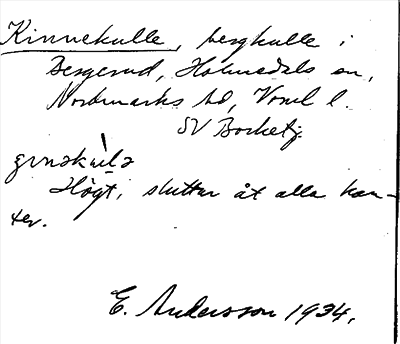 Kinnekulle, bergkulle i
Bergerud, Holmedals sn,
Nordmarks hd, Vrml l.
SV Bocketj.
Högt, sluttar åt alla kan-
ter.
E. Andersson 1934.